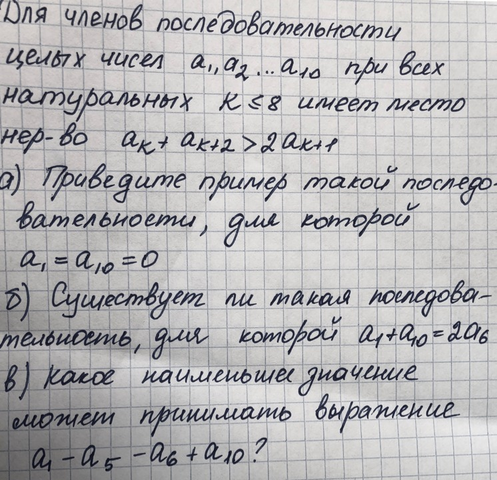 Для членов последовательности
целых чисел a₁, a₂ ... a₁₀ при всех
натуральных K ≤ 8 имеет место
нер-во aₖ + aₖ₊₂ > 2aₖ₊₁
а) Приведите пример такой последо-
вательности, для которой
a₁ = a₁₀ = 0
б) Существует ли такая последова-
тельность, для которой a₁ + a₁₀ = 2a₆
в) Какое наименьшее значение
может принимать выражение
a₁ - a₅ - a₆ + a₁₀?